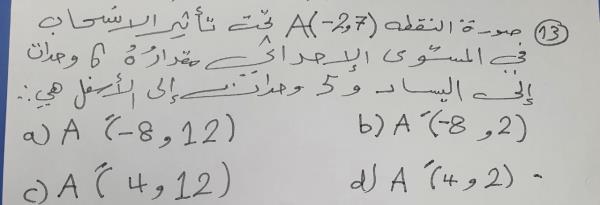 13 صورة النقطه A(-2,7) تحت تأثير الانسحاب
في المستوى الإحداثي مقدارُهُ 6 وحدات
إلى اليسار و 5 وحدات إلى الأسفل هي:
a) A´(-8 , 12) b) A´(-8 , 2)
c) A´( 4 , 12) d) A´(4 , 2)